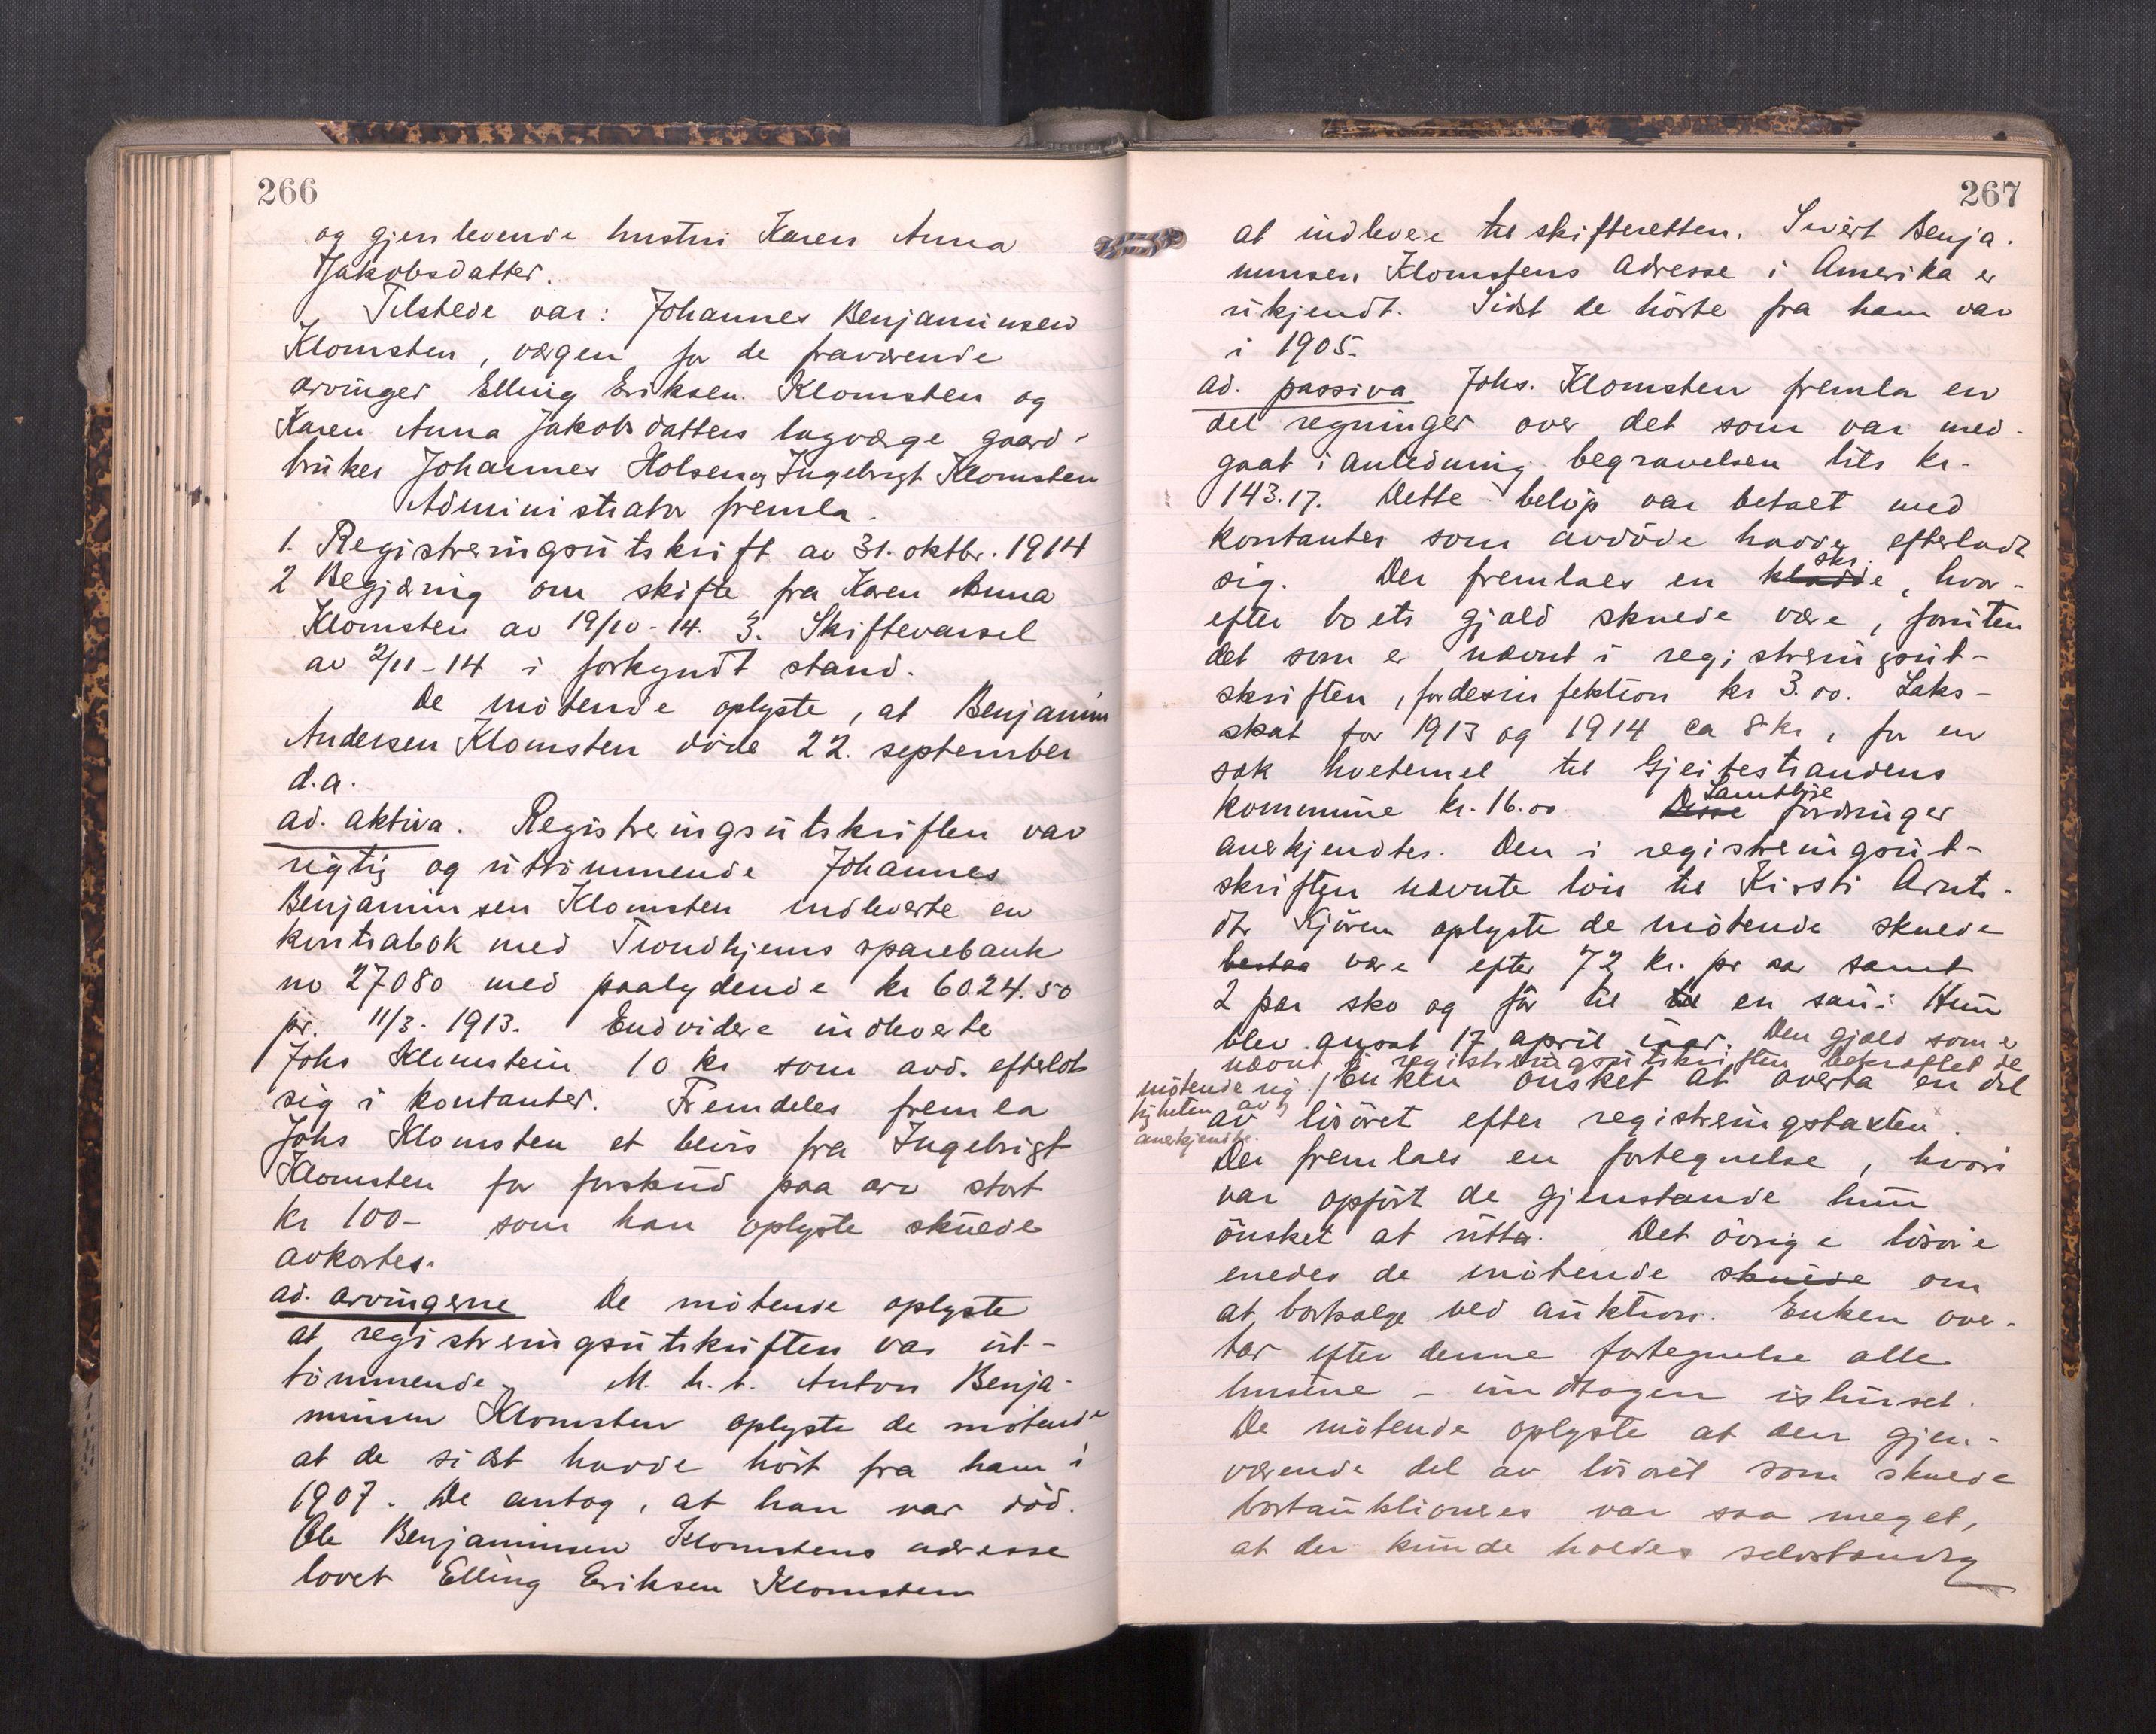 266
og gjenlevende hustru Karen Anna
Jakobsdatter.
Tilstede var: Johannes Benjaminsen
Klomsten, værgen for de fraværende
arvinger Elling Eriksen Klomsten og
Karen Anna Jakobsdatters lagværge gaard-
bruker Johannes Holsen og Ingebrigt Klomsten
Administrator fremla.
1. Registreringsutskrift av 31. oktbr. 1914
2 Begjæring om skifte fra Karen Anna
Klomsten av 19/10-14. 3. Skiftevarsel
av 2/11-14 i forkyndt stand.
De møtende oplyste, at Benjamin
Andersen Klomsten døde 22. september
d.a.
ad. aktiva. Registreringsutskriften var
rigtig og uttømmende Johannes
Benjaminsen Klomsten indleverte en
kontrabok med Trondhjems sparebank
no 27080 med paalydende kr 6024.50
pr. 11/3. 1913. Endvidere indleverte
Johs Klomstein 10 kr som avd. efterlot
sig i kontanter. Fremdeles fremla
Johs Klomsten et bevis fra Ingebrigt
Klomsten for forskud paa arv stort
kr 100- som han oplyste skulde
avkortes.
ad. arvingerne De møtende oplyste
at registreringsutskriften var ut-
tømmende. M. h. t. Anton Benja-
minsen Klomsten oplyste de møtende
at de sidst havde hørt fra ham i
1907. De antog, at han var død.
Ole Benjaminsen Klomstens adresse
lovet Elling Eriksen Klomsten
267
at indlevere til skifteretten. Sivert Benja.
minsen Klomstens adresse i Amerika er
ukjendt. Sidst de hørte fra ham var
i 1905.
ad. passiva Johs. Klomsten fremla en
del regninger over det som var med-
gaat i anledning begravelsen tils kr.
143.17. Dette beløp var betalt med
kontanter som avdøde havde efterladt
sig. Der fremlaes en kladde skr., hvor-
efter boets gjæld skulde være, foruten
det som er nævnt i registreringsut-
skriften, for desinfektion kr 3.00. Laks-
skat for 1913 og 1914 ca 8 kr, for en
sæk hvetemel til Gjeitestrandens
kommune kr. 16.00 Disse Samtlige fordringer
anerkjendtes. Den i registreringsut-
skriften nævnte løn til Kirsti Arnts-
dtr Kjøren oplyste de møtende skulde
bestaa være efter 72 kr. pr aar samt
2 par sko og får til til en sau: Hun
blev ansat 17 april iaar. Den gjæld som er
nævnt i registreringsutskriften bekræftet de
møtende rig-
tigheten av og
anerkjendte.
/ Enken ønsket at overta en del
av løsøret efter registreringstaxten.
Der fremlaes en fortegnelse, hvori
var opført de gjenstande hun
ønsket at utta. Det øvrige løsøre
enedes de møtende skulde om
at bortsælge ved auktion. Enken over-
tar efter denne fortegnelse alle
husene - undtagen ishuset.
De møtende oplyste at den gjen-
værende del av løsøret som skulde
bortauktioneres var saa meget,
at der kunde holdes selvstændig